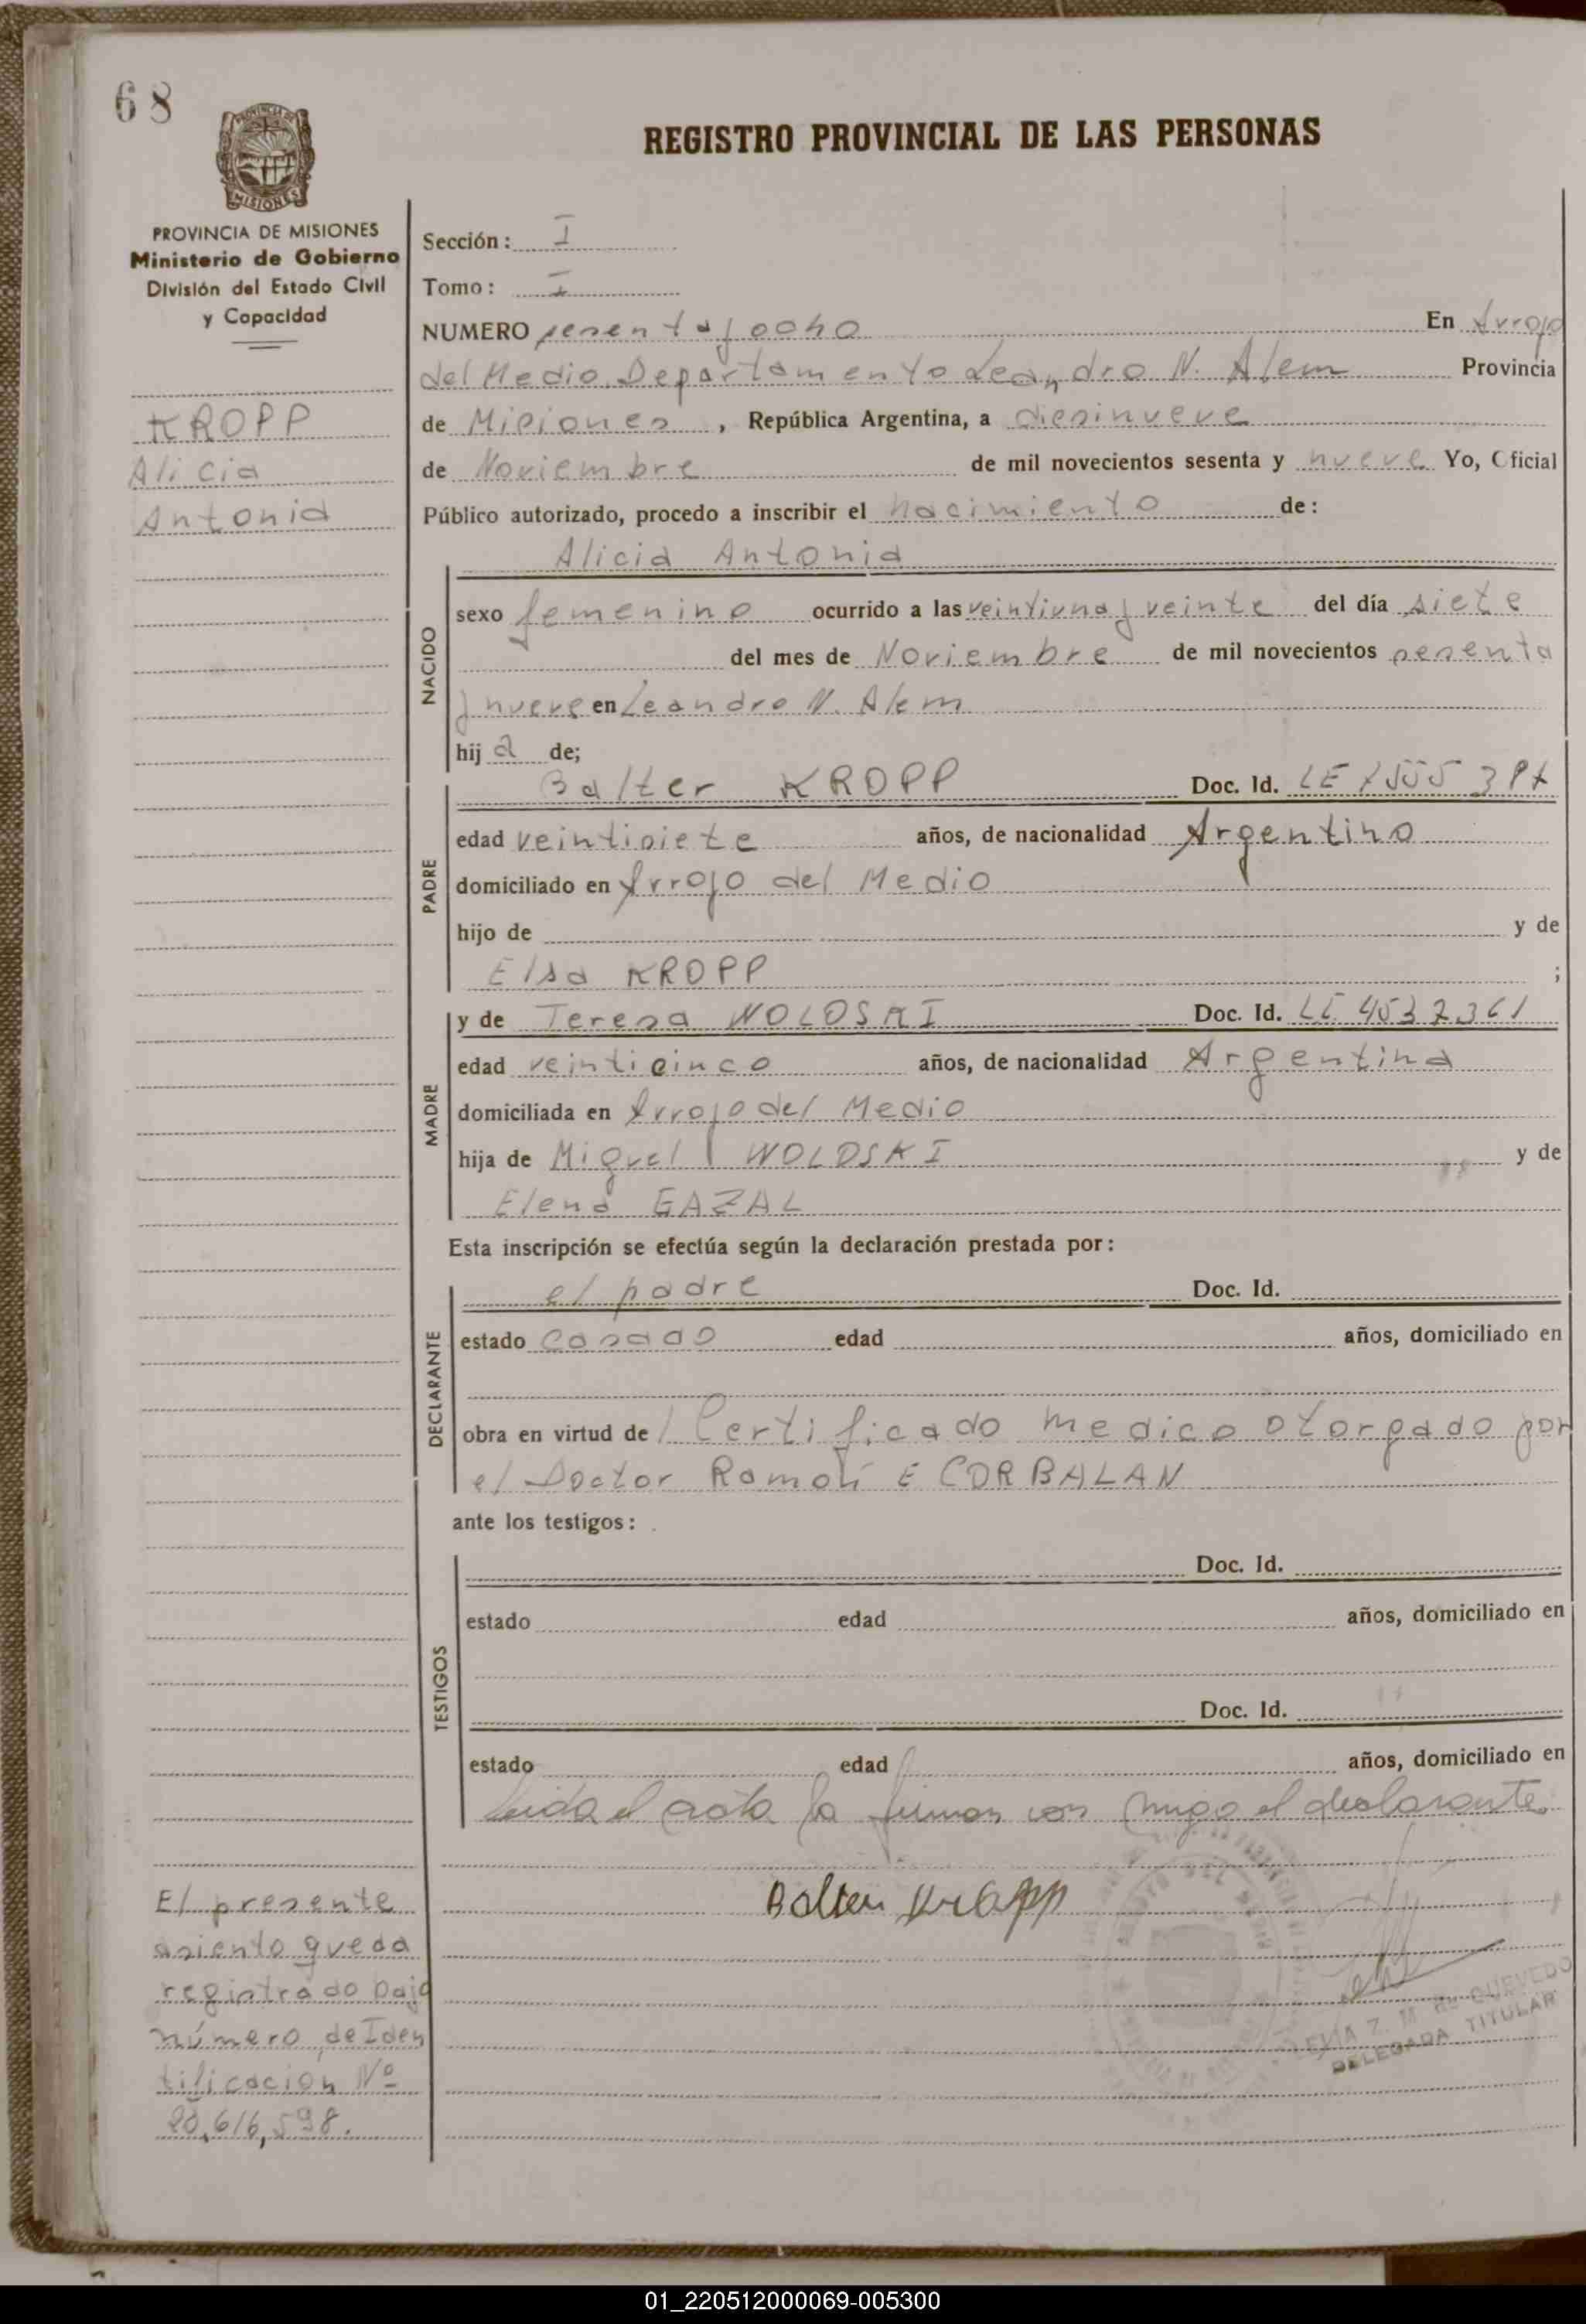 68
REGISTRO PROVINCIAL DE LAS PERSONAS
MISIONES
PROVINCIA DE MISIONES
Ministerio de Gobierno
División del Estado Civil
y Capacidad
KROPP
Alicia
Antonia
Sección: I
Tomo: I
NUMERO sesenta y ocho En Arroyo
del Medio Departamento Leandro N. Alem Provincia
de Misiones, República Argentina, a diesinueve
de Noviembre de mil novecientos sesenta y nueve Yo, Oficial
Público autorizado, procedo a inscribir el nacimiento de:
Alicia Antonia
NACIDO
sexo femenino ocurrido a las veintiuna y veinte del día siete
del mes de Noviembre de mil novecientos sesenta
y nueve en Leandro N. Alem
hij a de;
PADRE
Balter KROPP Doc. Id. LE
edad veintisiete años, de nacionalidad Argentino
domiciliado en Arroyo del Medio
hijo de y de
Elsa KROPP ;
MADRE
y de Teresa WOLOSKI Doc. Id. LE
edad veinticinco años, de nacionalidad Argentina
domiciliada en Arroyo del Medio
hija de Miguel WOLOSKI y de
Elena GAZAL
Esta inscripción se efectúa según la declaración prestada por:
DECLARANTE
el padre Doc. Id.
estado casado edad años, domiciliado en
obra en virtud de / Certificado medico otorgado por
el Doctor Ramon E CORBALAN
ante los testigos:
TESTIGOS
Doc. Id.
estado edad años, domiciliado en
Doc. Id.
estado edad años, domiciliado en
Leida el acta la firman con migo el declarante
Balter Kropp
QUEVEDO
DELEGADA TITULAR
El presente
asiento queda
registrado bajo
número de Iden
tificacion Nº
20.616,598.
01_220512000069-005300